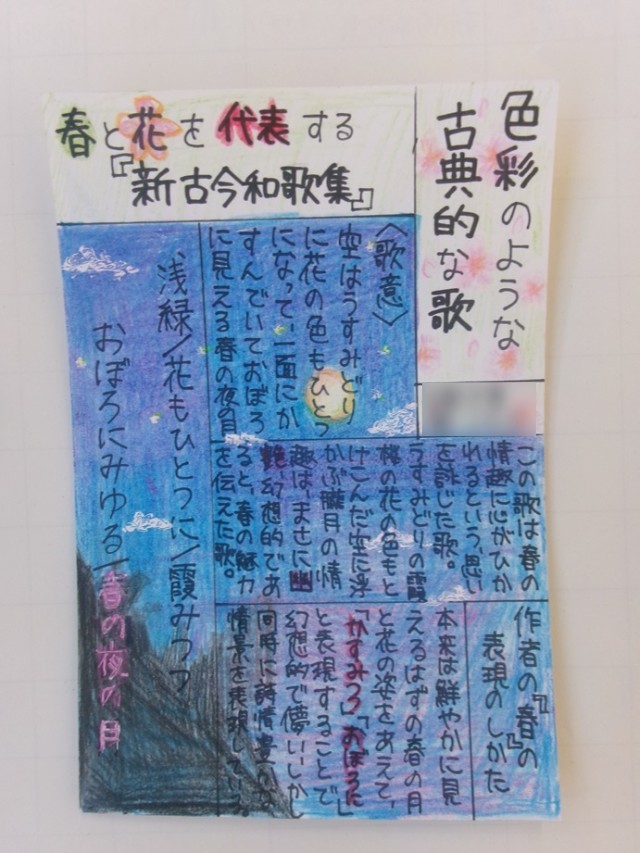 色彩のような
古典的な歌
春と花を代表する
『新古今和歌集』
〈歌意〉
空はうすみどり
に花の色もひとつ
になって一面にか
すんでいておぼろ
に見える春の夜の月
浅緑/花もひとつに/霞みつつ/
おぼろにみゆる/春の夜の月
この歌は春の
情趣に心がひか
れるという、思い
を詠じた歌。
うすみどりの霞
桜の花の色もと
けこんだ空に浮
かぶ朧月の情
趣は、まさに幽
艶、幻想的であ
ると、春の魅力
を伝えた歌。
作者の『春』の
表現のしかた
本来は鮮やかに見
えるはずの春の月
と花の姿をあえて、
「かすみつつ」「おぼろに」
と表現することで
幻想的で儚い、しかし
同時に詩情豊かな
情景を表現している。